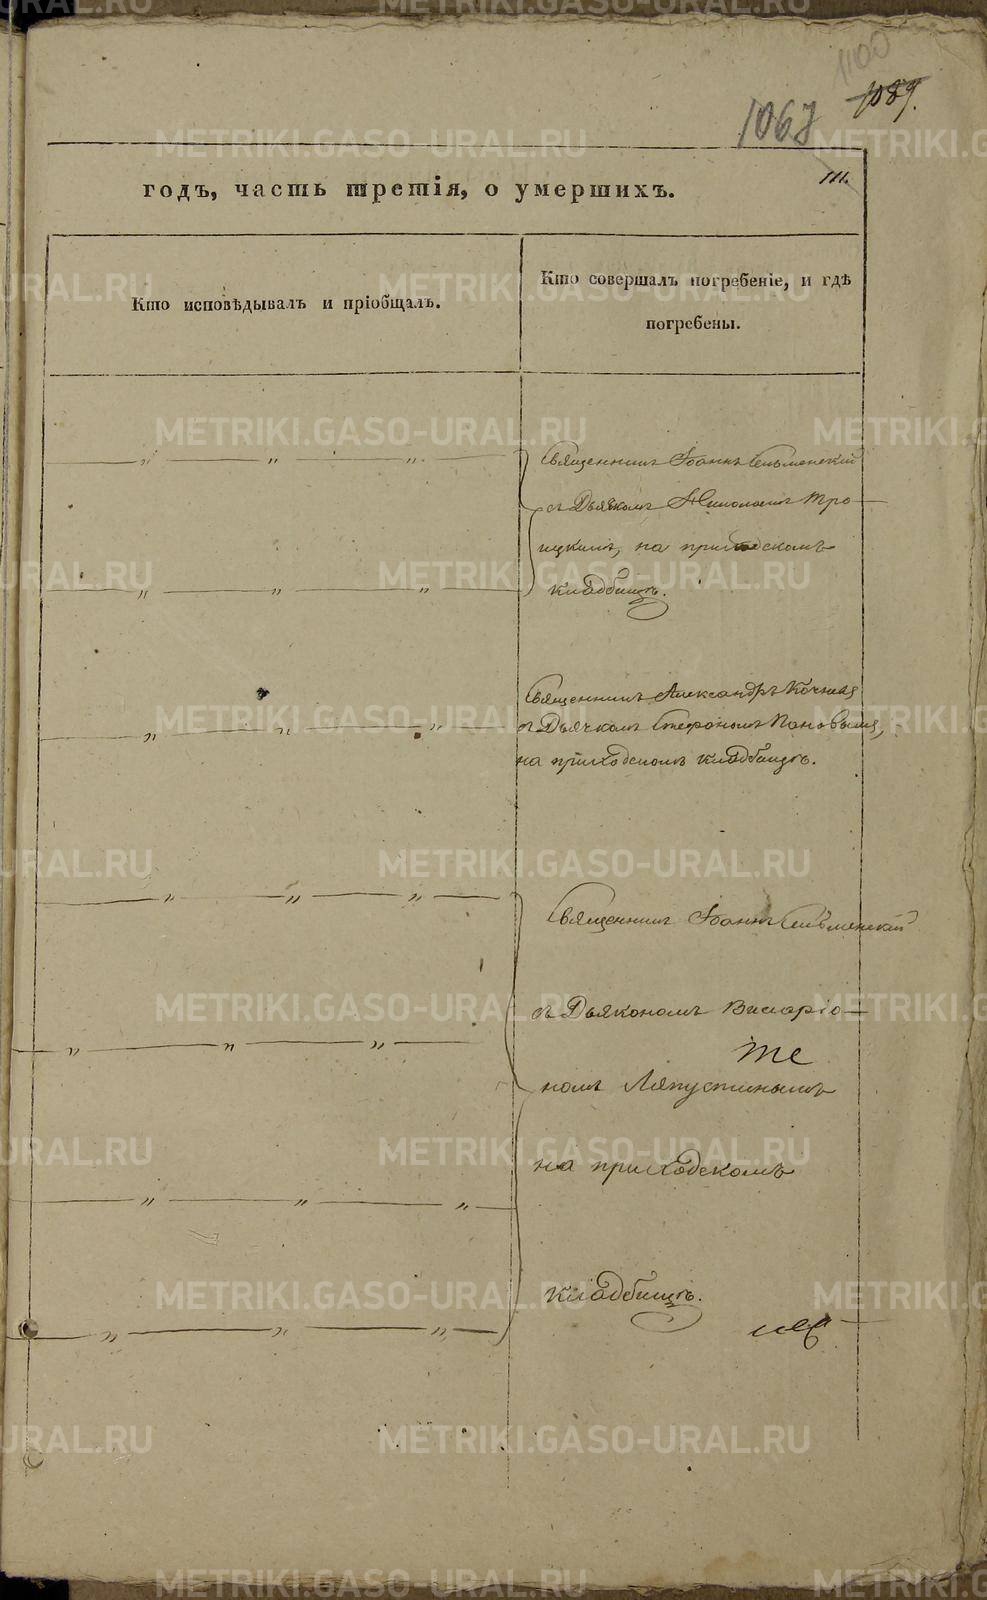 1100
1089.
1067
годъ, часть третія, о умершихъ.
Кто исповѣдывалъ и пріобщалъ.
Кто совершалъ погребеніе, и гдѣ
погребены.
— „ — „ — „ —
Священникъ Іоаннъ
съ Дьячкомъ Николаемъ Тро-
ицкимъ, на приходскомъ
кладбищѣ.
— „ — „ — „ —
Священникъ Александръ
съ Дьячкомъ Стефаномъ Поповымъ,
на приходскомъ кладбищѣ.
— „ — „ — „ —
— „ — „ — „ —
Священникъ Іоаннъ
съ Дьякономъ Висаріо-
те
номъ Ляпустинымъ
— „ — „ — „ —
на приходскомъ
— „ — „ — „ —
кладбищѣ.
— „ — „ — „ —
METRIKI.GASO-URAL.RU